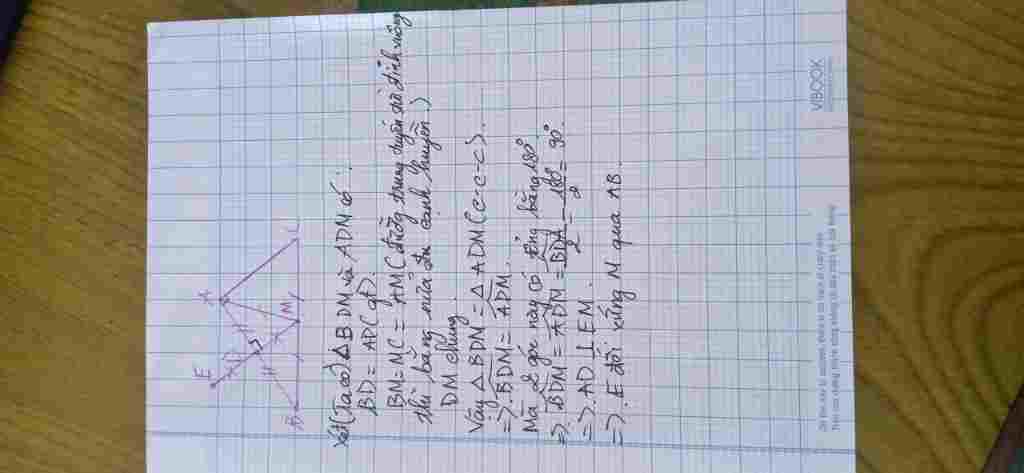 E
A
D
H
B
M
C
Xét (Ta có) △BDM và ADM có:
BD = AD (gt).
BM = MC = AM (đường trung tuyến từ đỉnh vuông
thì bằng nửa cạnh huyền.)
DM chung.
Vậy △BDM = △ADM (c-c-c).
=> BDM = ADM.
Mà 2 góc này có tổng bằng 180°
=> BDM = ADM = BDA/2 = 180°/2 = 90°.
=> AD ⊥ EM.
=> E đối xứng M qua AB.
VIBOOK